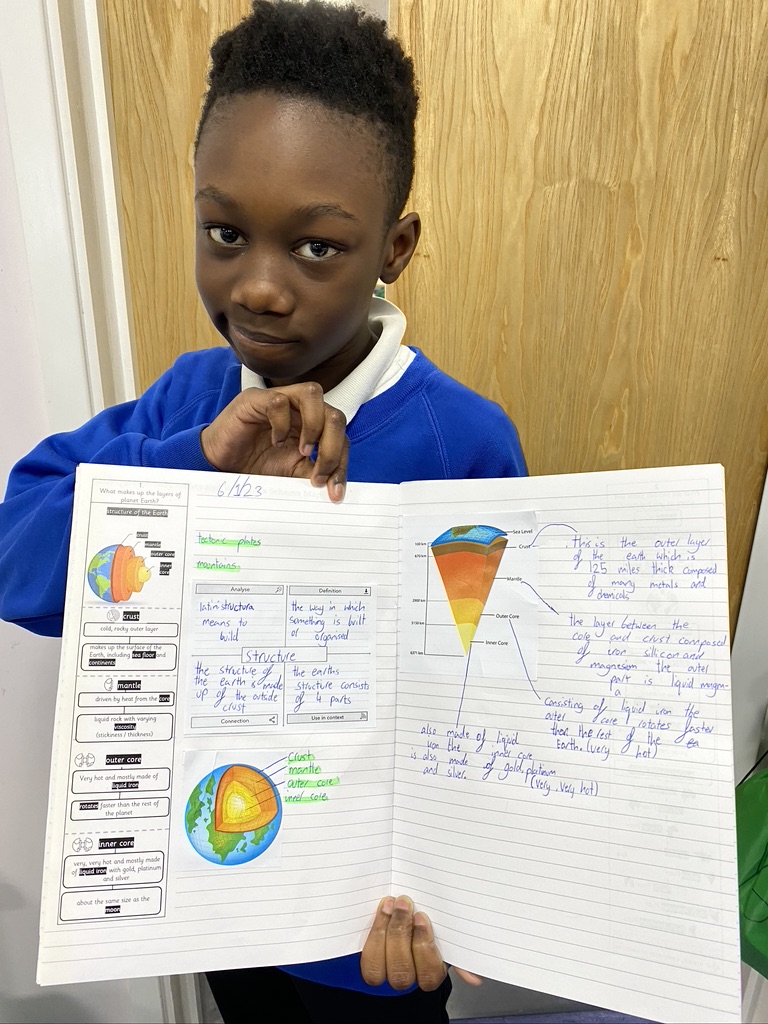 1.
What makes up the layers of
planet Earth?
structure of the Earth
crust
mantle
outer core
inner
core
crust
cold, rocky outer layer
makes up the surface of the
Earth, including sea floor and
continents
mantle
driven by heat from the core
liquid rock with varying
viscosity
(stickiness / thickness)
outer core
Very hot and mostly made of
liquid iron
rotates faster than the rest of
the planet
inner core
very, very hot and mostly made
of liquid iron with gold, platinum
and silver
about the same size as the
moon
6/1/23
tectonic plates
mountains
Analyse
latin structura
means to
build
Definition
the way in which
something is built
or organised
Structure
the structure of
the earth is made
up of the outside
crust
Connection
the earths
structure consists
of 4 parts
Use in context
Crust
mantle
outer core
inner core
Sea Level
Crust
Mantle
Outer Core
Inner Core
This is the outer layer
of the earth which is
125 miles thick composed
of many metals and
chemicals
the layer between the
core and crust composed
of iron silicon and
magnesium the outer
part is liquid magm-
a
consisting of liquid iron the
outer core rotates faster
then the rest of the ea
Earth. (very hot)
also made of liquid
iron the inner core
is also made of gold, platinum
and silver. (very, very hot)